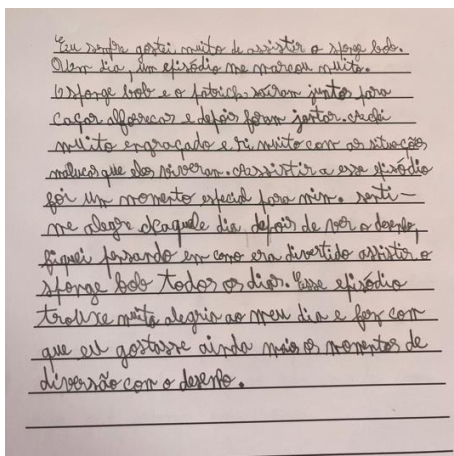 Eu sempre gostei muito de assistir o sponge bob.
Num dia, um episódio me marcou muito.
O sponge bob e o patrick saíram juntos para
caçar alforrecas e depois foram jantar. Achei
muito engraçado e ri muito com as situações
malucas que eles viveram. Assistir a esse episódio
foi um momento especial para mim. senti-
me alegre naquele dia, depois de ver o desenho,
fiquei pensando em como era divertido assistir o
sponge bob todos os dias. Esse episódio
trouxe muita alegria ao meu dia e fez com
que eu gostasse ainda mais os momentos de
diversão com o desenho.